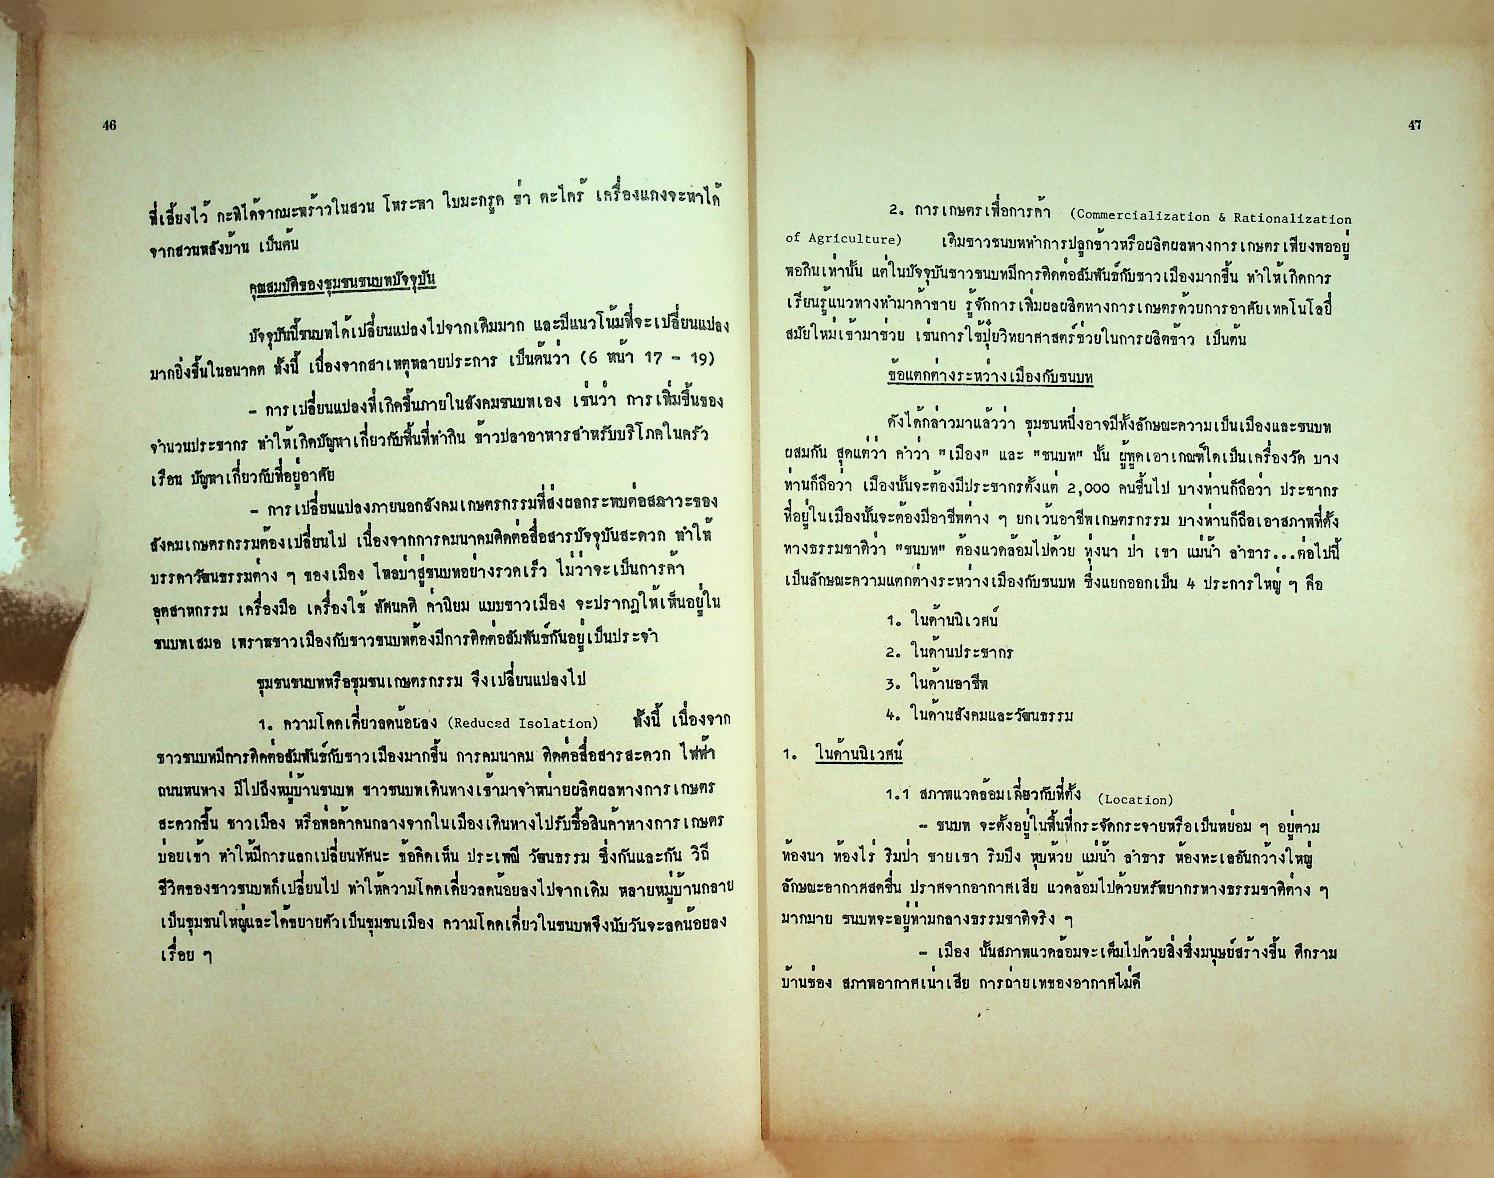 46
ที่เลี้ยงไว้ กะทิได้จากมะพร้าวในสวน โหระพา ใบมะกรูด ข่า ตะไคร้ เครื่องแกงจะหาได้
จากสวนหลังบ้าน เป็นต้น
คุณสมบัติของชุมชนชนบทปัจจุบัน
ปัจจุบันนี้ชนบทได้เปลี่ยนแปลงไปจากเดิมมาก และมีแนวโน้มที่จะเปลี่ยนแปลง
มากยิ่งขึ้นในอนาคต ทั้งนี้ เนื่องจากสาเหตุหลายประการ เป็นต้นว่า (6 หน้า 17 - 19)
- การเปลี่ยนแปลงที่เกิดขึ้นภายในสังคมชนบทเอง เช่นว่า การเพิ่มขึ้นของ
จำนวนประชากร ทำให้เกิดปัญหาเกี่ยวกับพื้นที่ทำกิน ข้าวปลาอาหารสำหรับบริโภคในครัว
เรือน ปัญหาเกี่ยวกับที่อยู่อาศัย
- การเปลี่ยนแปลงภายนอกสังคมเกษตรกรรมที่ส่งผลกระทบต่อสภาวะของ
สังคมเกษตรกรรมต้องเปลี่ยนไป เนื่องจากการคมนาคมติดต่อสื่อสารปัจจุบันสะดวก ทำให้
บรรดาวัฒนธรรมต่าง ๆ ของเมือง ไหลบ่าสู่ชนบทอย่างรวดเร็ว ไม่ว่าจะเป็นการค้า
อุตสาหกรรม เครื่องมือ เครื่องใช้ ทัศนคติ ค่านิยม แบบชาวเมือง จะปรากฏให้เห็นอยู่ใน
ชนบทเสมอ เพราะชาวเมืองกับชาวชนบทต้องมีการติดต่อสัมพันธ์กันอยู่เป็นประจำ
ชุมชนชนบทหรือชุมชนเกษตรกรรม จึงเปลี่ยนแปลงไป
1. ความโดดเดี่ยวลดน้อยลง (Reduced Isolation) ทั้งนี้ เนื่องจาก
ชาวชนบทมีการติดต่อสัมพันธ์กับชาวเมืองมากขึ้น การคมนาคม ติดต่อสื่อสารสะดวก ไฟฟ้า
ถนนหนทาง มีไปถึงหมู่บ้านชนบท ชาวชนบทเดินทางเข้ามาจำหน่ายผลิตผลทางการเกษตร
สะดวกขึ้น ชาวเมือง หรือพ่อค้าคนกลางจากในเมืองเดินทางไปรับซื้อสินค้าทางการเกษตร
บ่อยเข้า ทำให้มีการแลกเปลี่ยนทัศนะ ข้อคิดเห็น ประเพณี วัฒนธรรม ซึ่งกันและกัน วิถี
ชีวิตของชาวชนบทก็เปลี่ยนไป ทำให้ความโดดเดี่ยวลดน้อยลงไปจากเดิม หลายหมู่บ้านกลาย
เป็นชุมชนใหญ่และได้ขยายตัวเป็นชุมชนเมือง ความโดดเดี่ยวในชนบทจึงนับวันจะลดน้อยลง
เรื่อย ๆ
47
2. การเกษตรเพื่อการค้า (Commercialization & Rationalization
of Agriculture) เดิมชาวชนบททำการปลูกข้าวหรือผลิตผลทางการเกษตรเพียงพออยู่
พอกินเท่านั้น แต่ในปัจจุบันชาวชนบทมีการติดต่อสัมพันธ์กับชาวเมืองมากขึ้น ทำให้เกิดการ
เรียนรู้แนวทางทำมาค้าขาย รู้จักการเพิ่มผลผลิตทางการเกษตรด้วยการอาศัยเทคโนโลยี
สมัยใหม่เข้ามาช่วย เช่นการใช้ปุ๋ยวิทยาศาสตร์ช่วยในการผลิตข้าว เป็นต้น
ข้อแตกต่างระหว่างเมืองกับชนบท
ดังได้กล่าวมาแล้วว่า ชุมชนหนึ่งอาจมีทั้งลักษณะความเป็นเมืองและชนบท
ผสมกัน สุดแต่ว่า คำว่า "เมือง" และ "ชนบท" นั้น ผู้พูดเอาเกณฑ์ใดเป็นเครื่องวัด บาง
ท่านก็ถือว่า เมืองนั้นจะต้องมีประชากรตั้งแต่ 2,000 คนขึ้นไป บางท่านก็ถือว่า ประชากร
ที่อยู่ในเมืองนั้นจะต้องมีอาชีพต่าง ๆ ยกเว้นอาชีพเกษตรกรรม บางท่านก็ถือเอาสภาพที่ตั้ง
ทางธรรมชาติว่า "ชนบท" ต้องแวดล้อมไปด้วย ทุ่งนา ป่า เขา แม่น้ำ ลำธาร...ต่อไปนี้
เป็นลักษณะความแตกต่างระหว่างเมืองกับชนบท ซึ่งแยกออกเป็น 4 ประการใหญ่ ๆ คือ
1. ในด้านนิเวศน์
2. ในด้านประชากร
3. ในด้านอาชีพ
4. ในด้านสังคมและวัฒนธรรม
1. ในด้านนิเวศน์
1.1 สภาพแวดล้อมเกี่ยวกับที่ตั้ง (Location)
- ชนบท จะตั้งอยู่ในพื้นที่กระจัดกระจายหรือเป็นหย่อม ๆ อยู่ตาม
ท้องนา ท้องไร่ ริมป่า ชายเขา ริมบึง หุบห้วย แม่น้ำ ลำธาร ท้องทะเลอันกว้างใหญ่
ลักษณะอากาศสดชื่น ปราศจากอากาศเสีย แวดล้อมไปด้วยทรัพยากรทางธรรมชาติต่าง ๆ
มากมาย ชนบทจะอยู่ท่ามกลางธรรมชาติจริง ๆ
- เมือง นั้นสภาพแวดล้อมจะเต็มไปด้วยสิ่งซึ่งมนุษย์สร้างขึ้น ตึกราม
บ้านช่อง สภาพอากาศเน่าเสีย การถ่ายเทของอากาศไม่ดี